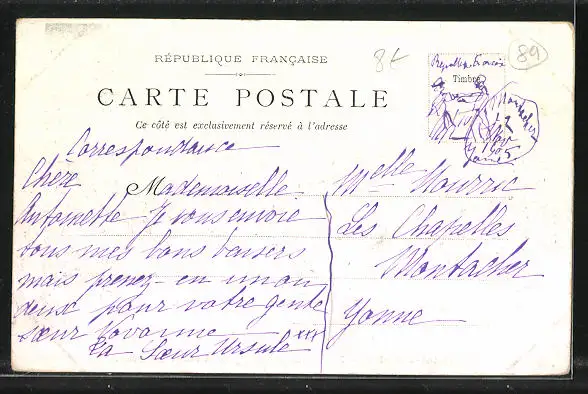 RÉPUBLIQUE FRANÇAISE
89
Timbre
CARTE POSTALE
Ce côté est exclusivement réservé à l'adresse
Montacher
12
1905
Yonne
Correspondance
Chere Mademoiselle
Antoinette Je vous envoie
tous mes bons baisers
mais prenez-en un ou
deux pour votre gente
sœur Yvonne
La Sœur Ursule xxx
Melle Nourric
Les Chapelles
Montacher
Yonne